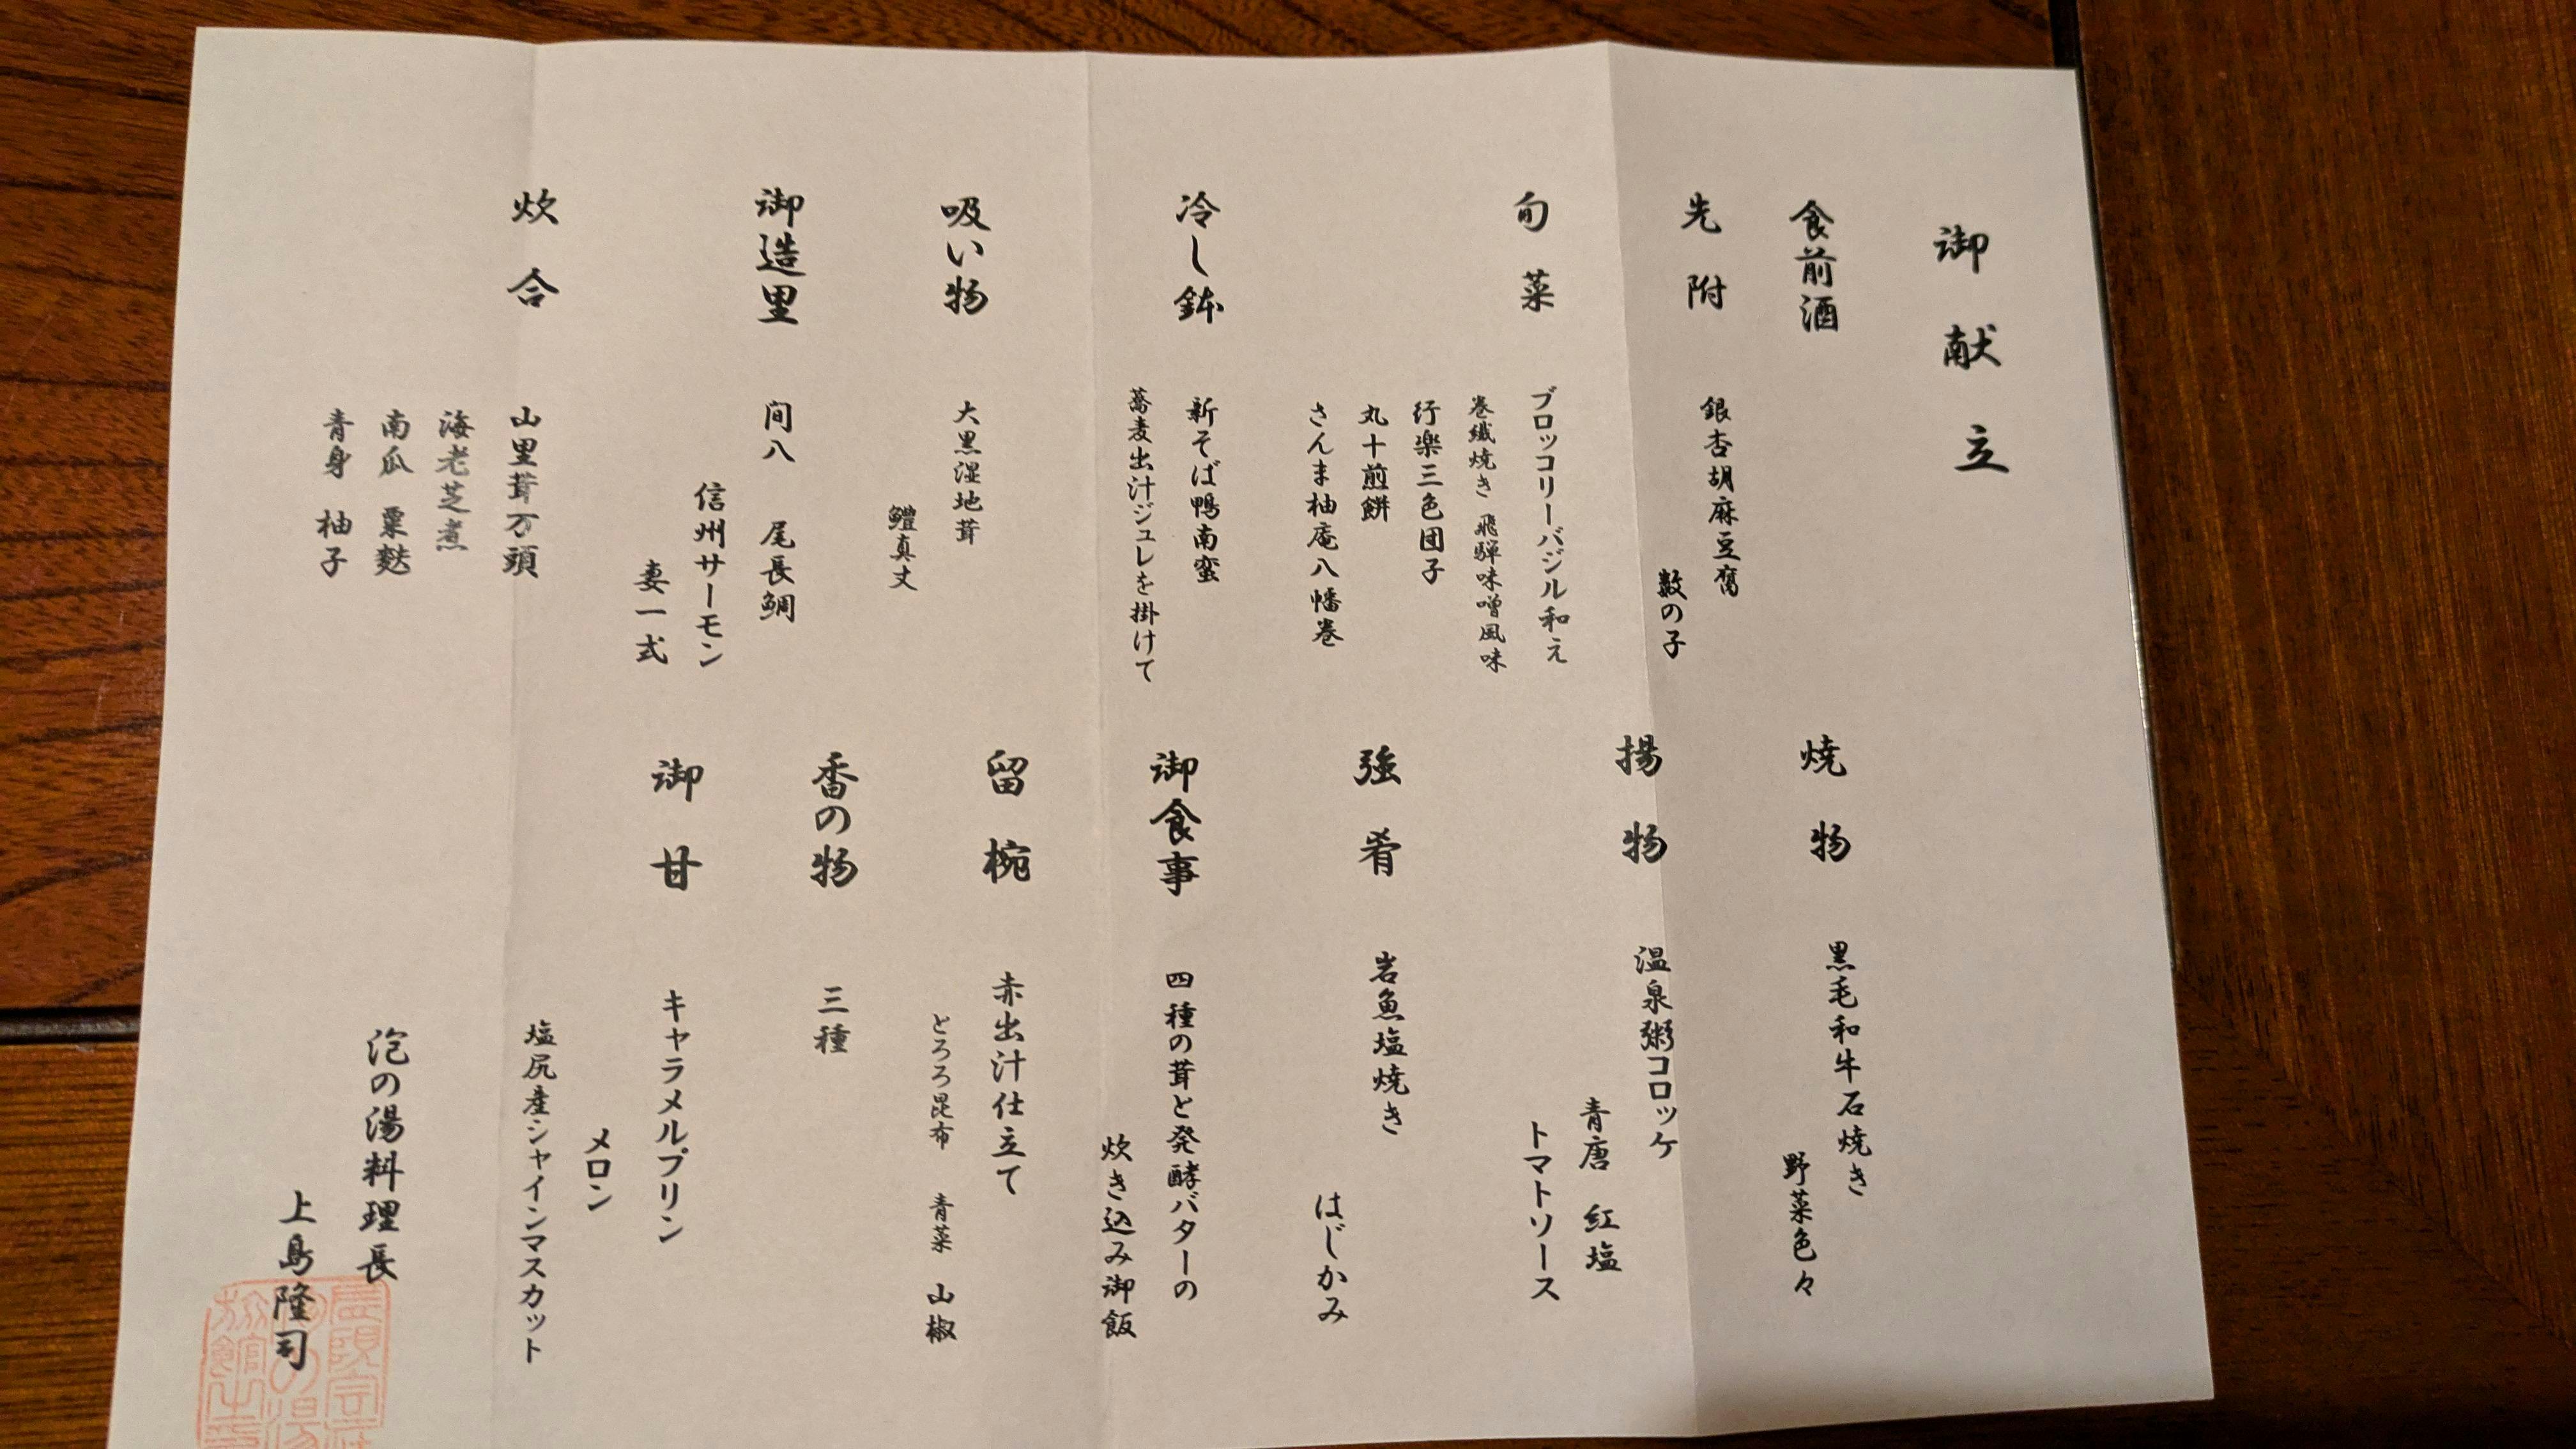 御献立
食前酒
先附
銀杏胡麻豆腐
数の子
旬菜
ブロッコリーバジル和え
巻繊焼き 飛騨味噌風味
行楽三色団子
丸十煎餅
さんま柚庵八幡巻
冷し鉢
新そば鴨南蛮
蕎麦出汁ジュレを掛けて
吸い物
大黒湿地茸
鱧真丈
御造里
間八 尾長鯛
信州サーモン
妻一式
炊合
山里茸万頭
海老芝煮
南瓜 粟麩
青身 柚子
焼物
黒毛和牛石焼き
野菜色々
揚物
温泉粥コロッケ
青唐 紅塩
トマトソース
強肴
岩魚塩焼き
はじかみ
御食事
四種の茸と発酵バターの
炊き込み御飯
留椀
赤出汁仕立て
とろろ昆布 青菜 山椒
香の物
三種
御甘
キャラメルプリン
メロン
塩尻産シャインマスカット
泡の湯料理長
上島隆司